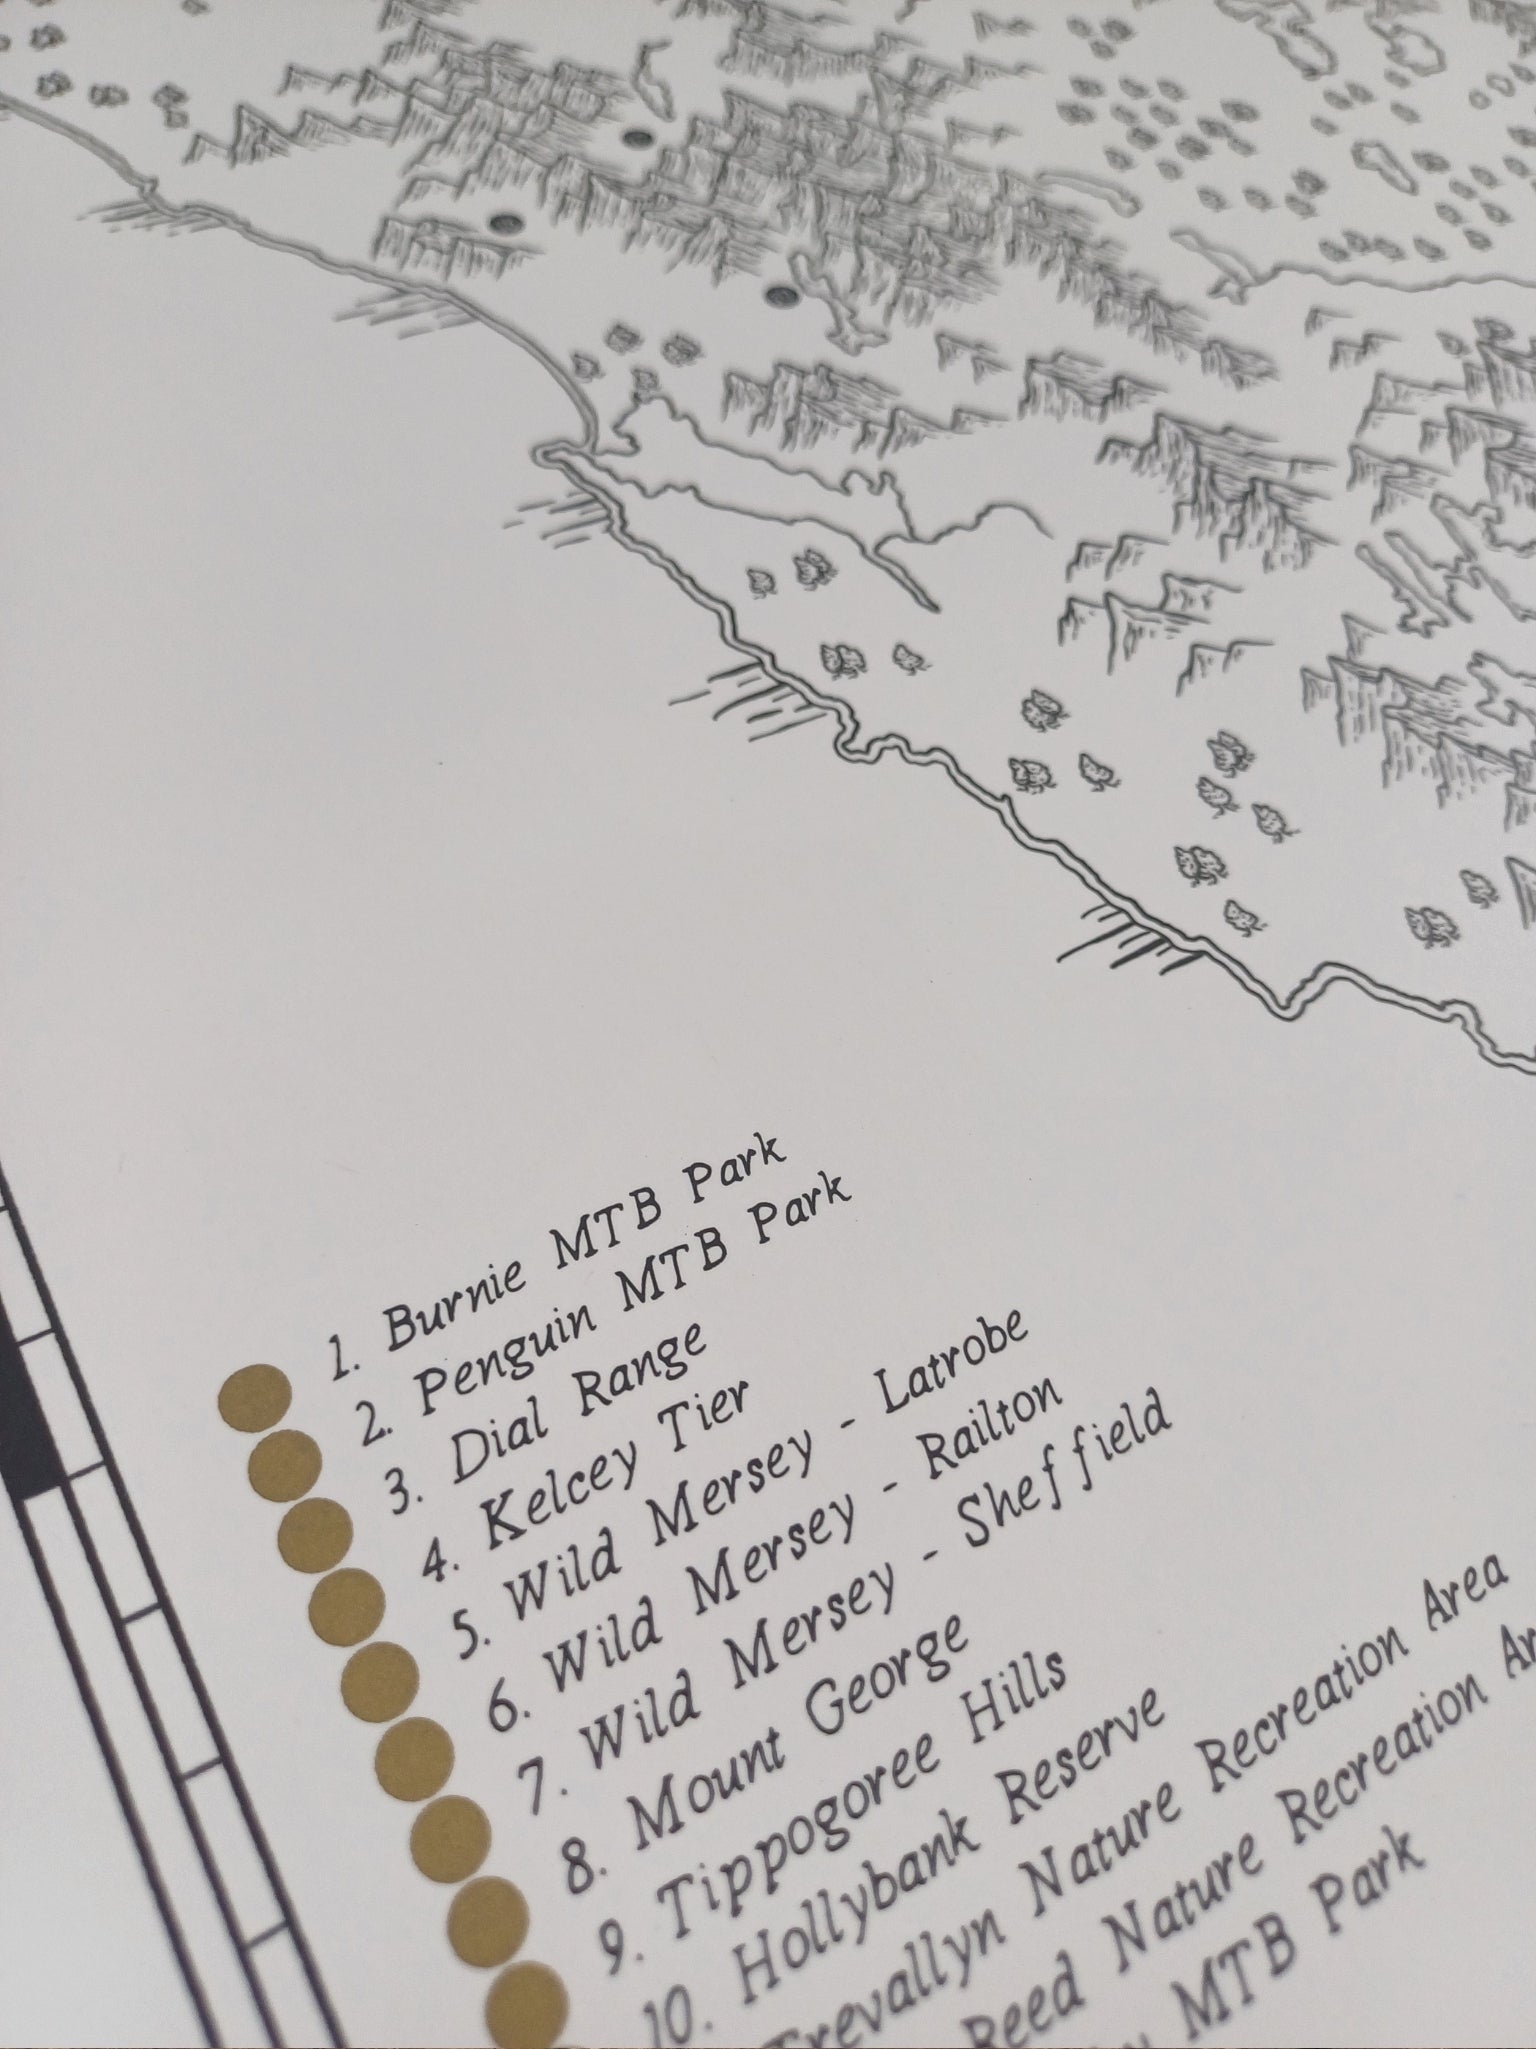 1. Burnie MTB Park
2. Penguin MTB Park
3. Dial Range
4. Kelcey Tier
5. Wild Mersey - Latrobe
6. Wild Mersey - Railton
7. Wild Mersey - Sheffield
8. Mount George
9. Tippogoree Hills
10. Hollybank Reserve
Trevallyn Nature Recreation Area
Reed Nature Recreation
MTB Park